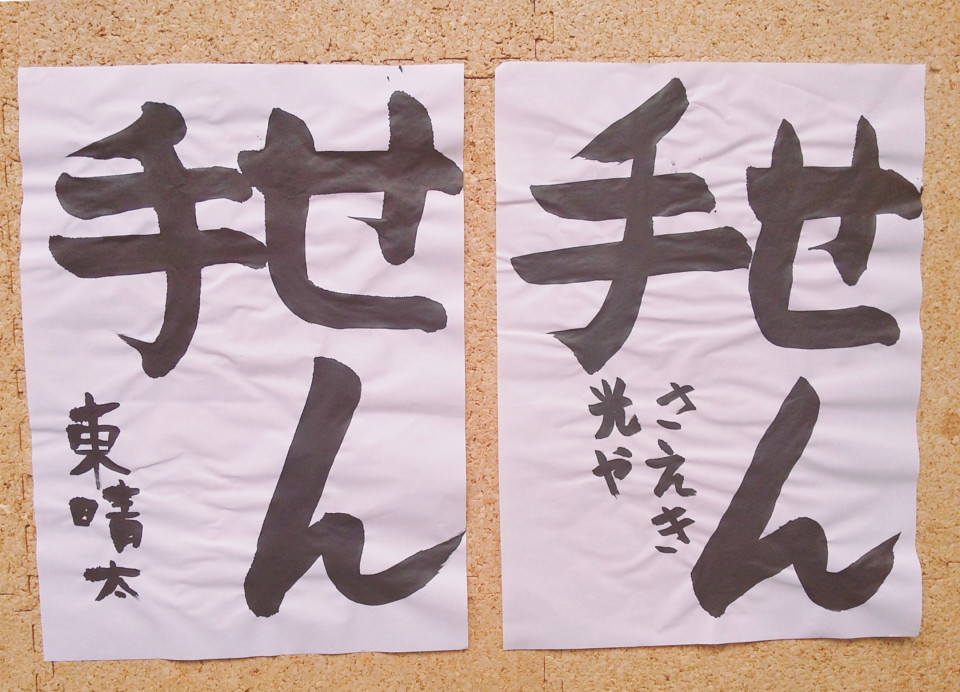 せん
手
さえき
光や
せん
手
東晴太